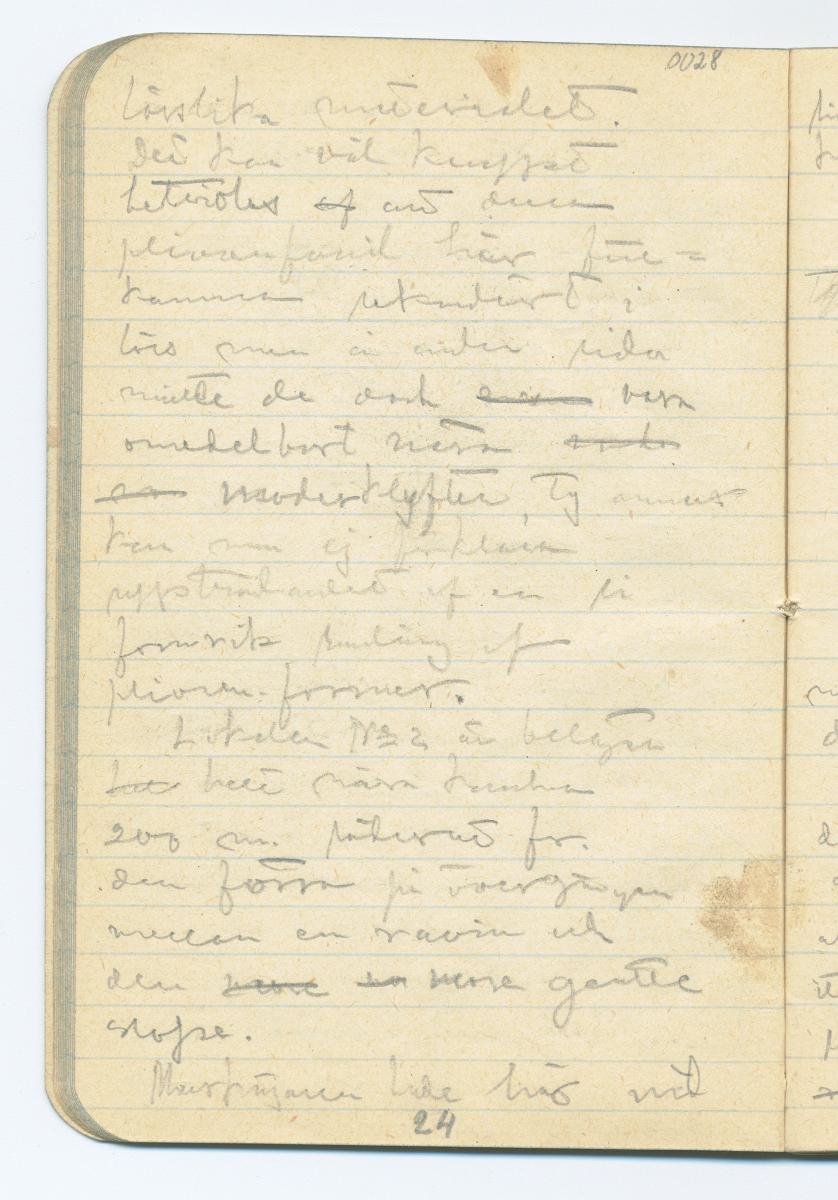 0028
lösslika materialet.
Det kan väl knappst
betvivlas af att denna
pliocenfossil här före=
komma sekundärt i
löss men å andra sidan
måste de dock vara
omedelbart nära
moderklyften, ty annars
kan man ej förklara
uppträdandet af en så
formrik samling af
pliocen-former.
Lokalen No 2 är belägen
helt nära kanske
200 m. söderut fr.
den förra på övergången
mellan en ravin och
den more gentle
slope.
hade här
24